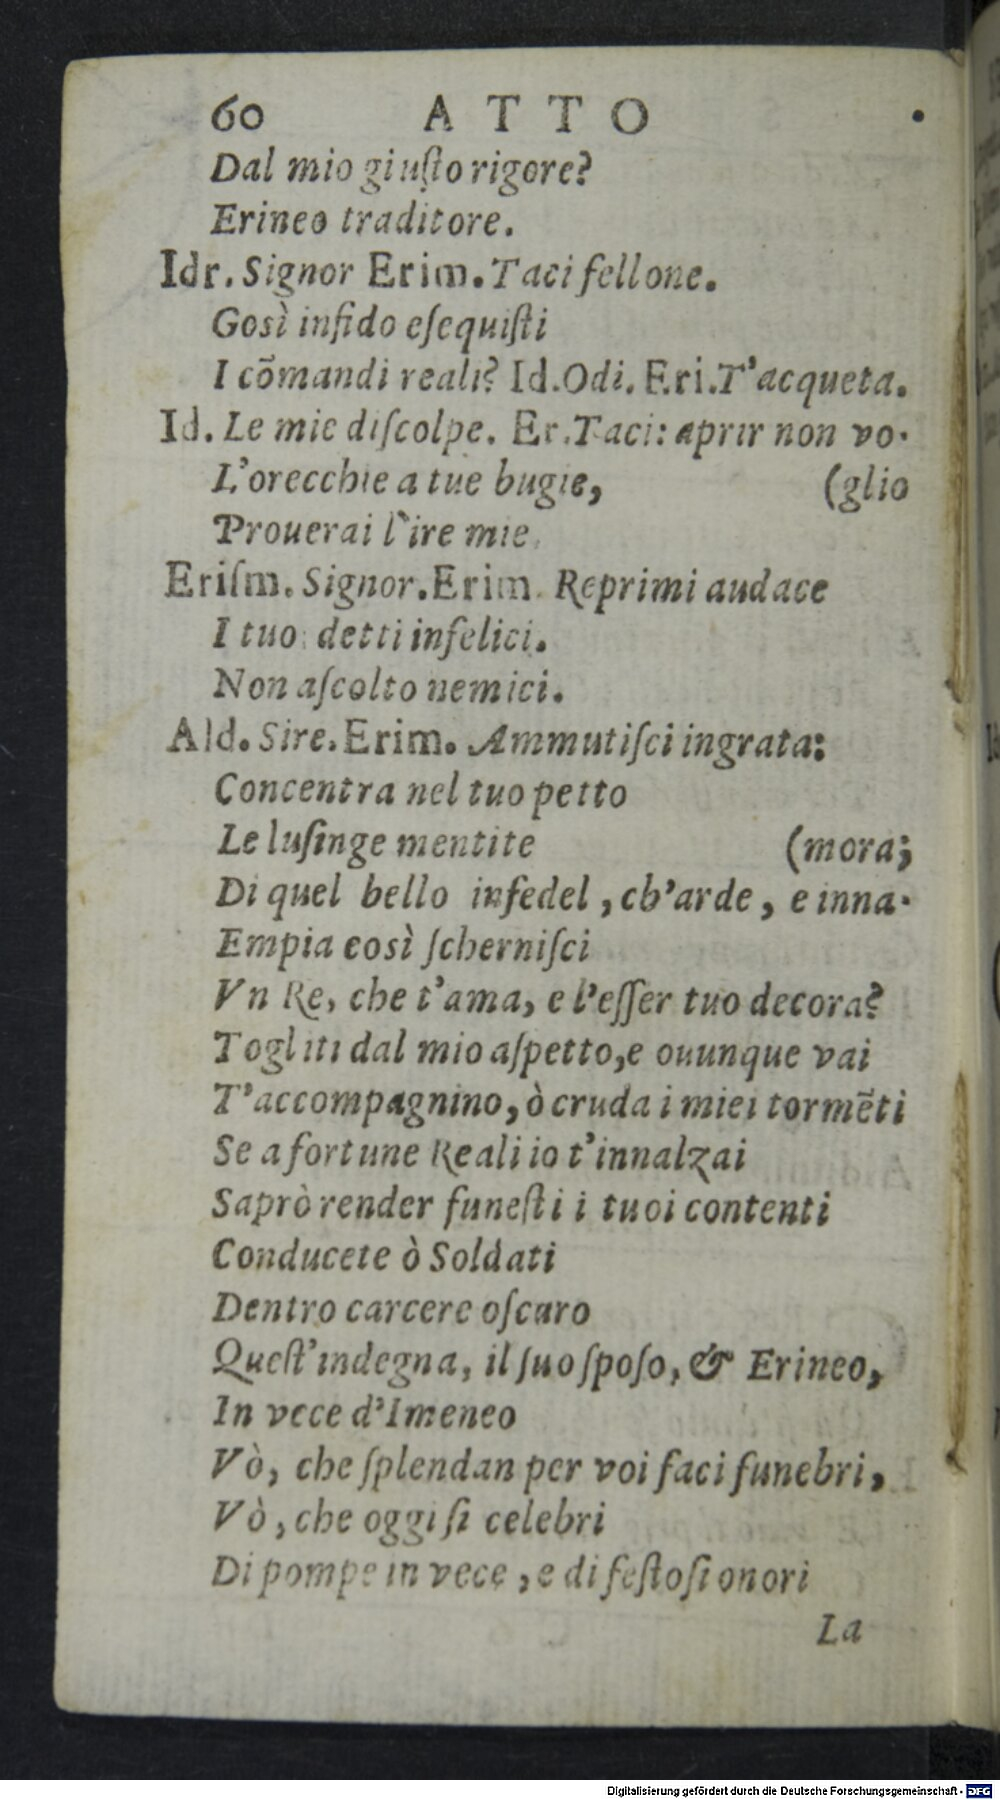 60 ATTO
Dal mio giuſto rigore?
Erineo traditore.
Idr. Signor Erim. Taci fellone.
Gosì infido eſequiſti
I cõmandi reali? Id. Odi. Eri. T'acqueta.
Id. Le mie diſcolpe. Er. Taci: aprir non vo-
L'orecchie a tue bugie, (glio
Prouerai l'ire mie.
Eriſm. Signor. Erim. Reprimi audace
I tuo detti infelici.
Non aſcolto nemici.
Ald. Sire. Erim. Ammutiſci ingrata:
Concentra nel tuo petto
Le luſinge mentite (mora;
Di quel bello infedel, ch'arde, e inna-
Empia così ſcherniſci
Vn Re, che t'ama, e l'eſſer tuo decora?
Togliti dal mio aſpetto, e ouunque vai
T'accompagnino, ò cruda i miei tormẽti
Se a fortune Reali io t'innalzai
Saprò render funeſti i tuoi contenti
Conducete ò Soldati
Dentro carcere oſcuro
Queſt'indegna, il ſuo ſpoſo, & Erineo,
In vece d'Imeneo
Vò, che ſplendan per voi faci funebri,
Vò, che oggi ſi celebri
Di pompe in vece, e di feſtoſi onori
La
Digitalisierung gefördert durch die Deutsche Forschungsgemeinschaft - DFG